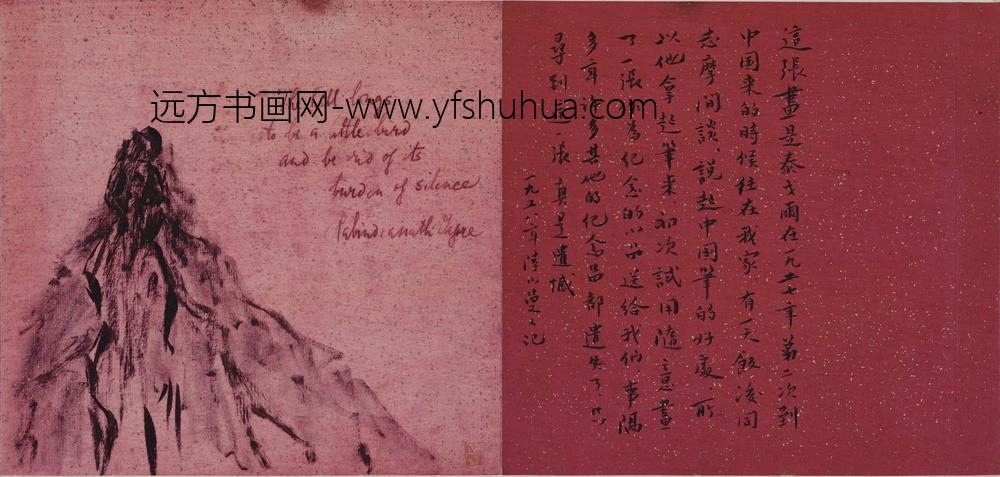 The hill longs
to be a little bird
and be rid of its
burden of silence
Rabindranath Tagore
远方书画网-www.yfshuhua.com
這張畫是泰戈爾在一九二七年第二次到
中国来的時候住在我家有一天飯後同
志摩间談説起中国筆的好處所
以他拿起筆来初次試用隨意畫
了一張為纪念的小品送給我们事隔
多年許多其他的纪念品都遺失了只
尋到這一張真是遺憾
一九五八年陸小曼记